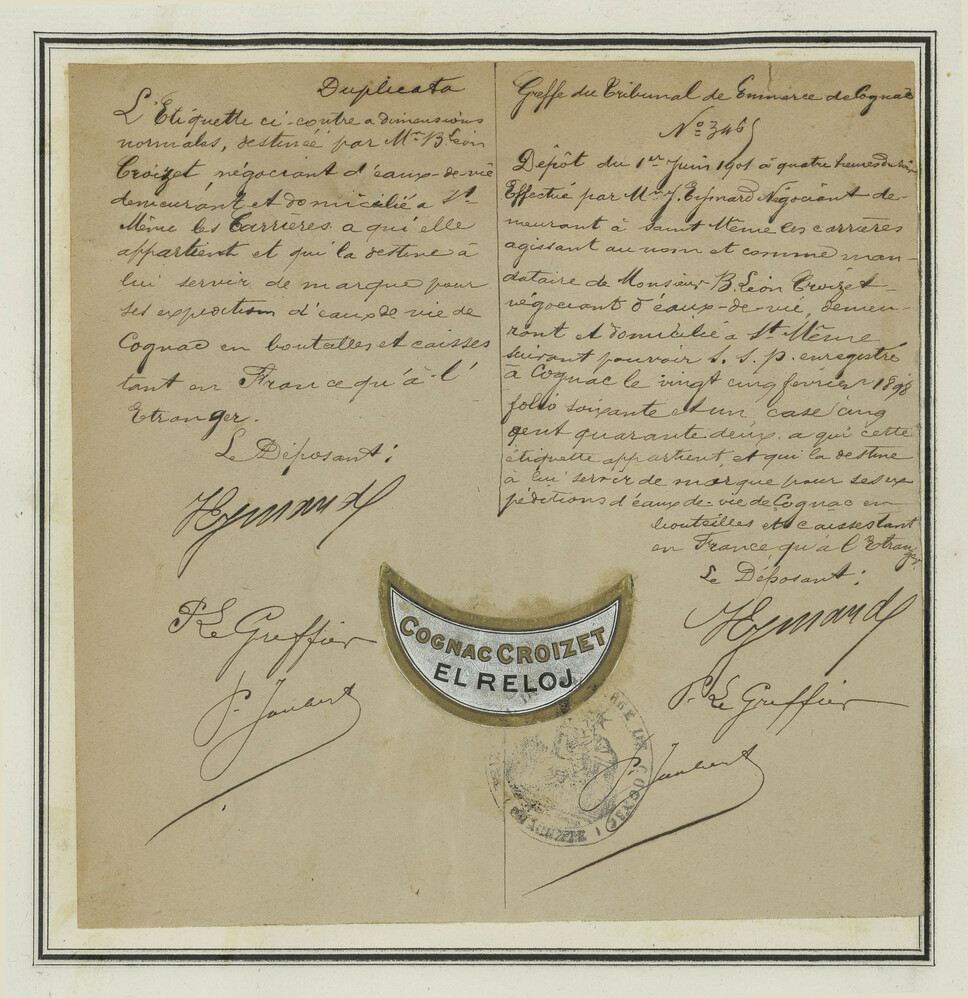 Duplicata
L'Etiquette ci-contre a dimensions
normales, destinée par Mr. B. Léon
Croizet négociant d'eaux-de-vie
demeurant et domicilié a St-
Même les Carrières a qui elle
appartient et qui la destine à
lui servir de marque pour
ses expeditions d'eaux de vie de
Cognac en bouteilles et caisses
tant en France qu'à l'
Etranger.
Le Déposant:
P. Le Greffier
P. Joubert
Greffe du Tribunal de Commerce de Cognac
No 3465
Dépôt du 1er Juin 1901 à quatre heures du soir
Effectué par Mr J. Eymard Négociant de-
meurant à Saint Même les carrières
agissant au nom et comme man-
dataire de Monsieur B. Léon Croizet
négociant d'eaux-de-vie, demeu-
rant et domicilié a St. Même
suivant pouvoir s. s. p. enregistré
à Cognac le vingt cinq février 1898
folio soixante et un case cinq
cent quarante deux. a qui cette
étiquette appartient, et qui la destine
à lui servir de marque pour ses ex-
péditions d'eaux-de-vie de Cognac en
bouteilles et caisses tant
en France qu'à l'Etranger.
Le Déposant:
P. Le Greffier
P. Joubert
COGNAC CROIZET
EL RELOJ
DE COGNAC